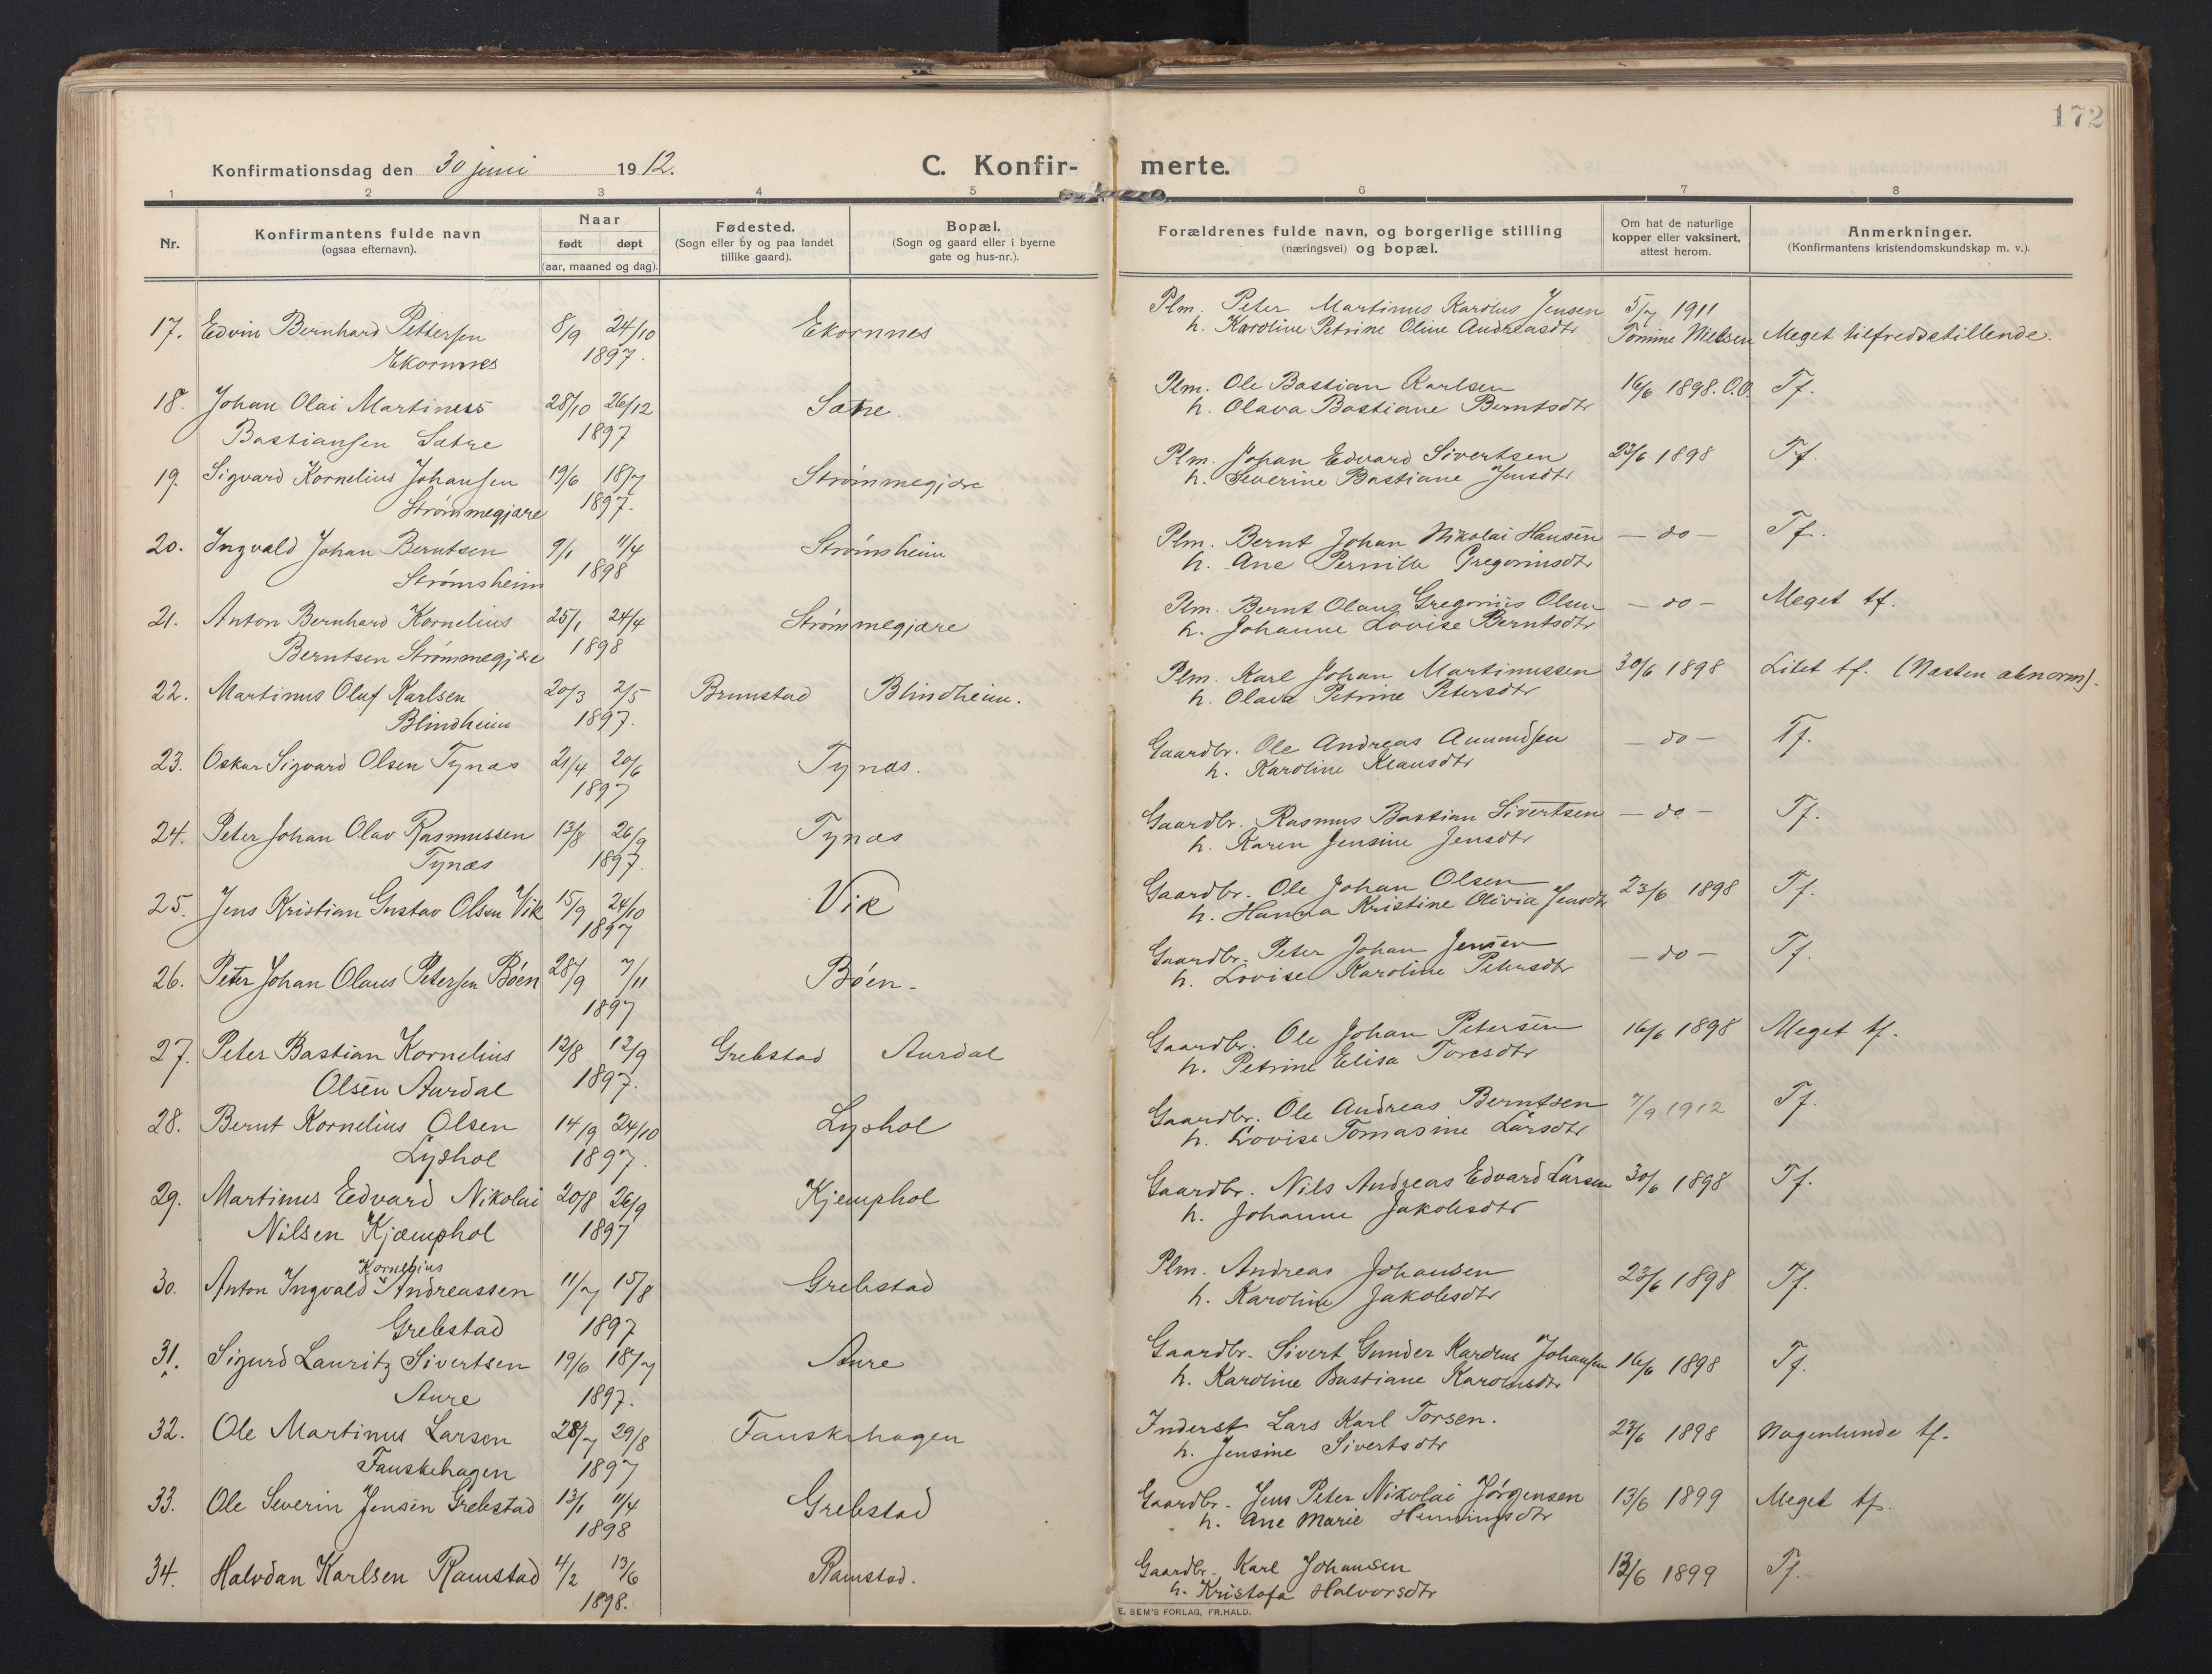 172
Konfirmationsdag den 30 juni 1912.
C. Konfir-merte.
1 2 3 4 5 6 7 8
Nr.
Konfirmantens fulde navn
(ogsaa efternavn).
Naar
født døpt
(aar, maaned og dag).
Fødested.
(Sogn eller by og paa landet
tillike gaard).
Bopæl.
(Sogn og gaard eller i byerne
gate og hus-nr.).
Forældrenes fulde navn, og borgerlige stilling
(næringsvei) og bopæl.
Om hat de naturlige
kopper eller vaksinert,
attest herom.
Anmerkninger.
(Konfirmantens kristendomskundskap m. v.).
17. Edvin Bernhard Pettersen 8/9 24/10 Ekornnes Plm. Peter Martinus Karolus Jensen 5/7 1911
Ekornnes 1897. h. Karoline Petrine Oline Andreasdtr Tomine Nielsen Meget tilfredsstillende.
18. Johan Olai Martines 28/10 26/12 Sætre. Plm. Ole Bastian Karlsen 16/6 1898. O.O. Tf.
Bastiansen Sætre 1897 h. Olava Bastiane Berntsdtr
19. Sigvard Kornelius Johansen 19/6 18/7 Strømmegjære Plm. Johan Edvard Sivertsen 23/6 1898 Tf.
Strømmegjære 1897. h. Severine Bastiane Jensdtr
20. Ingvald Johan Berntsen 9/1 11/4 Strømsheim Plm. Bernt Johan Nikolai Hansen — do — Tf.
Strømsheim 1898 h. Ane Pernille Gregoriusdtr
21. Anton Bernhard Kornelius 25/1 24/4 Strømmegjære Plm. Bernt Olaus Gregorius Olsen — do — Meget tf.
Berntsen Strømmegjære 1898 h. Johanne Lovise Berntsdtr
22. Martinus Oluf Karlsen 20/3 2/5 Brunstad Blindheim. Plm. Karl Johan Martinussen 30/6 1898 Litet tf. (Næsten abnorm).
Blindheim 1897. h. Olava Petrine Petersdtr
23. Oskar Sigvard Olsen Tynæs 21/4 20/6 Tynæs. Gaardbr. Ole Andreas Amundsen — do — Tf.
1897 h. Karoline Klausdtr
24. Peter Johan Olav Rasmussen 13/8 26/9 Tynæs Gaardbr. Rasmus Bastian Sivertsen — do — Tf.
Tynæs 1897. h. Karen Jensine Jensdtr
25. Jens Kristian Gustav Olsen Vik 15/9 24/10 Vik Gaardbr. Ole Johan Olsen 23/6 1898 Tf.
1897 h. Hanna Kristine Olivia Jensdtr
26. Peter Johan Olaus Petersen Bøen 28/9 7/11 Bøen. Gaardbr. Peter Johan Jensen — do — Tf.
1897 h. Lovise Karoline Petersdtr
27. Peter Bastian Kornelius 12/8 12/9 Grebstad Aurdal Gaardbr. Ole Johan Petersen 16/6 1898 Meget tf.
Olsen Aurdal 1897. h. Petrine Elisa Toresdtr
28. Bernt Kornelius Olsen 14/9 24/10 Lyshol Gaardbr. Ole Andreas Berntsen 7/9 1912 Tf.
Lyshol 1897. h. Lovise Tomasine Larsdtr
29. Martinus Edvard Nikolai 20/8 26/9 Kjemphol Gaardbr. Nils Andreas Edvard Larsen 30/6 1898 Tf.
Nilsen Kjæmphol 1897 h. Johanne Jakobsdtr
Kornelius
30. Anton Ingvald Andreassen 11/7 15/8 Grebstad Plm. Andreas Johansen 23/6 1898 Tf.
Grebstad 1897 h. Karoline Jakobsdtr
31. Sigurd Lauritz Sivertsen 19/6 18/7 Aure Gaardbr. Sivert Gunder Karolus Johansen 16/6 1898 Tf.
Aure 1897. h. Karoline Bastiane Karolusdtr
32. Ole Martinus Larsen 28/7 29/8 Fauskehagen Inderst Lars Karl Torsen. 23/6 1898 Nogenlunde tf.
Fauskehagen 1897 h. Jensine Sivertsdtr
33. Ole Severin Jensen Grebstad 13/1 11/4 Grebstad Gaardbr. Jens Peter Nikolai Jørgensen 13/6 1899 Meget tf.
1898 h. Ane Marie Henningsdtr
34. Halvdan Karlsen Ramstad 4/2 13/6 Ramstad. Gaardbr. Karl Johansen 13/6 1899 Tf.
1898. h. Kristofa Halvorsdtr
E. SEM'S FORLAG, FR.HALD.